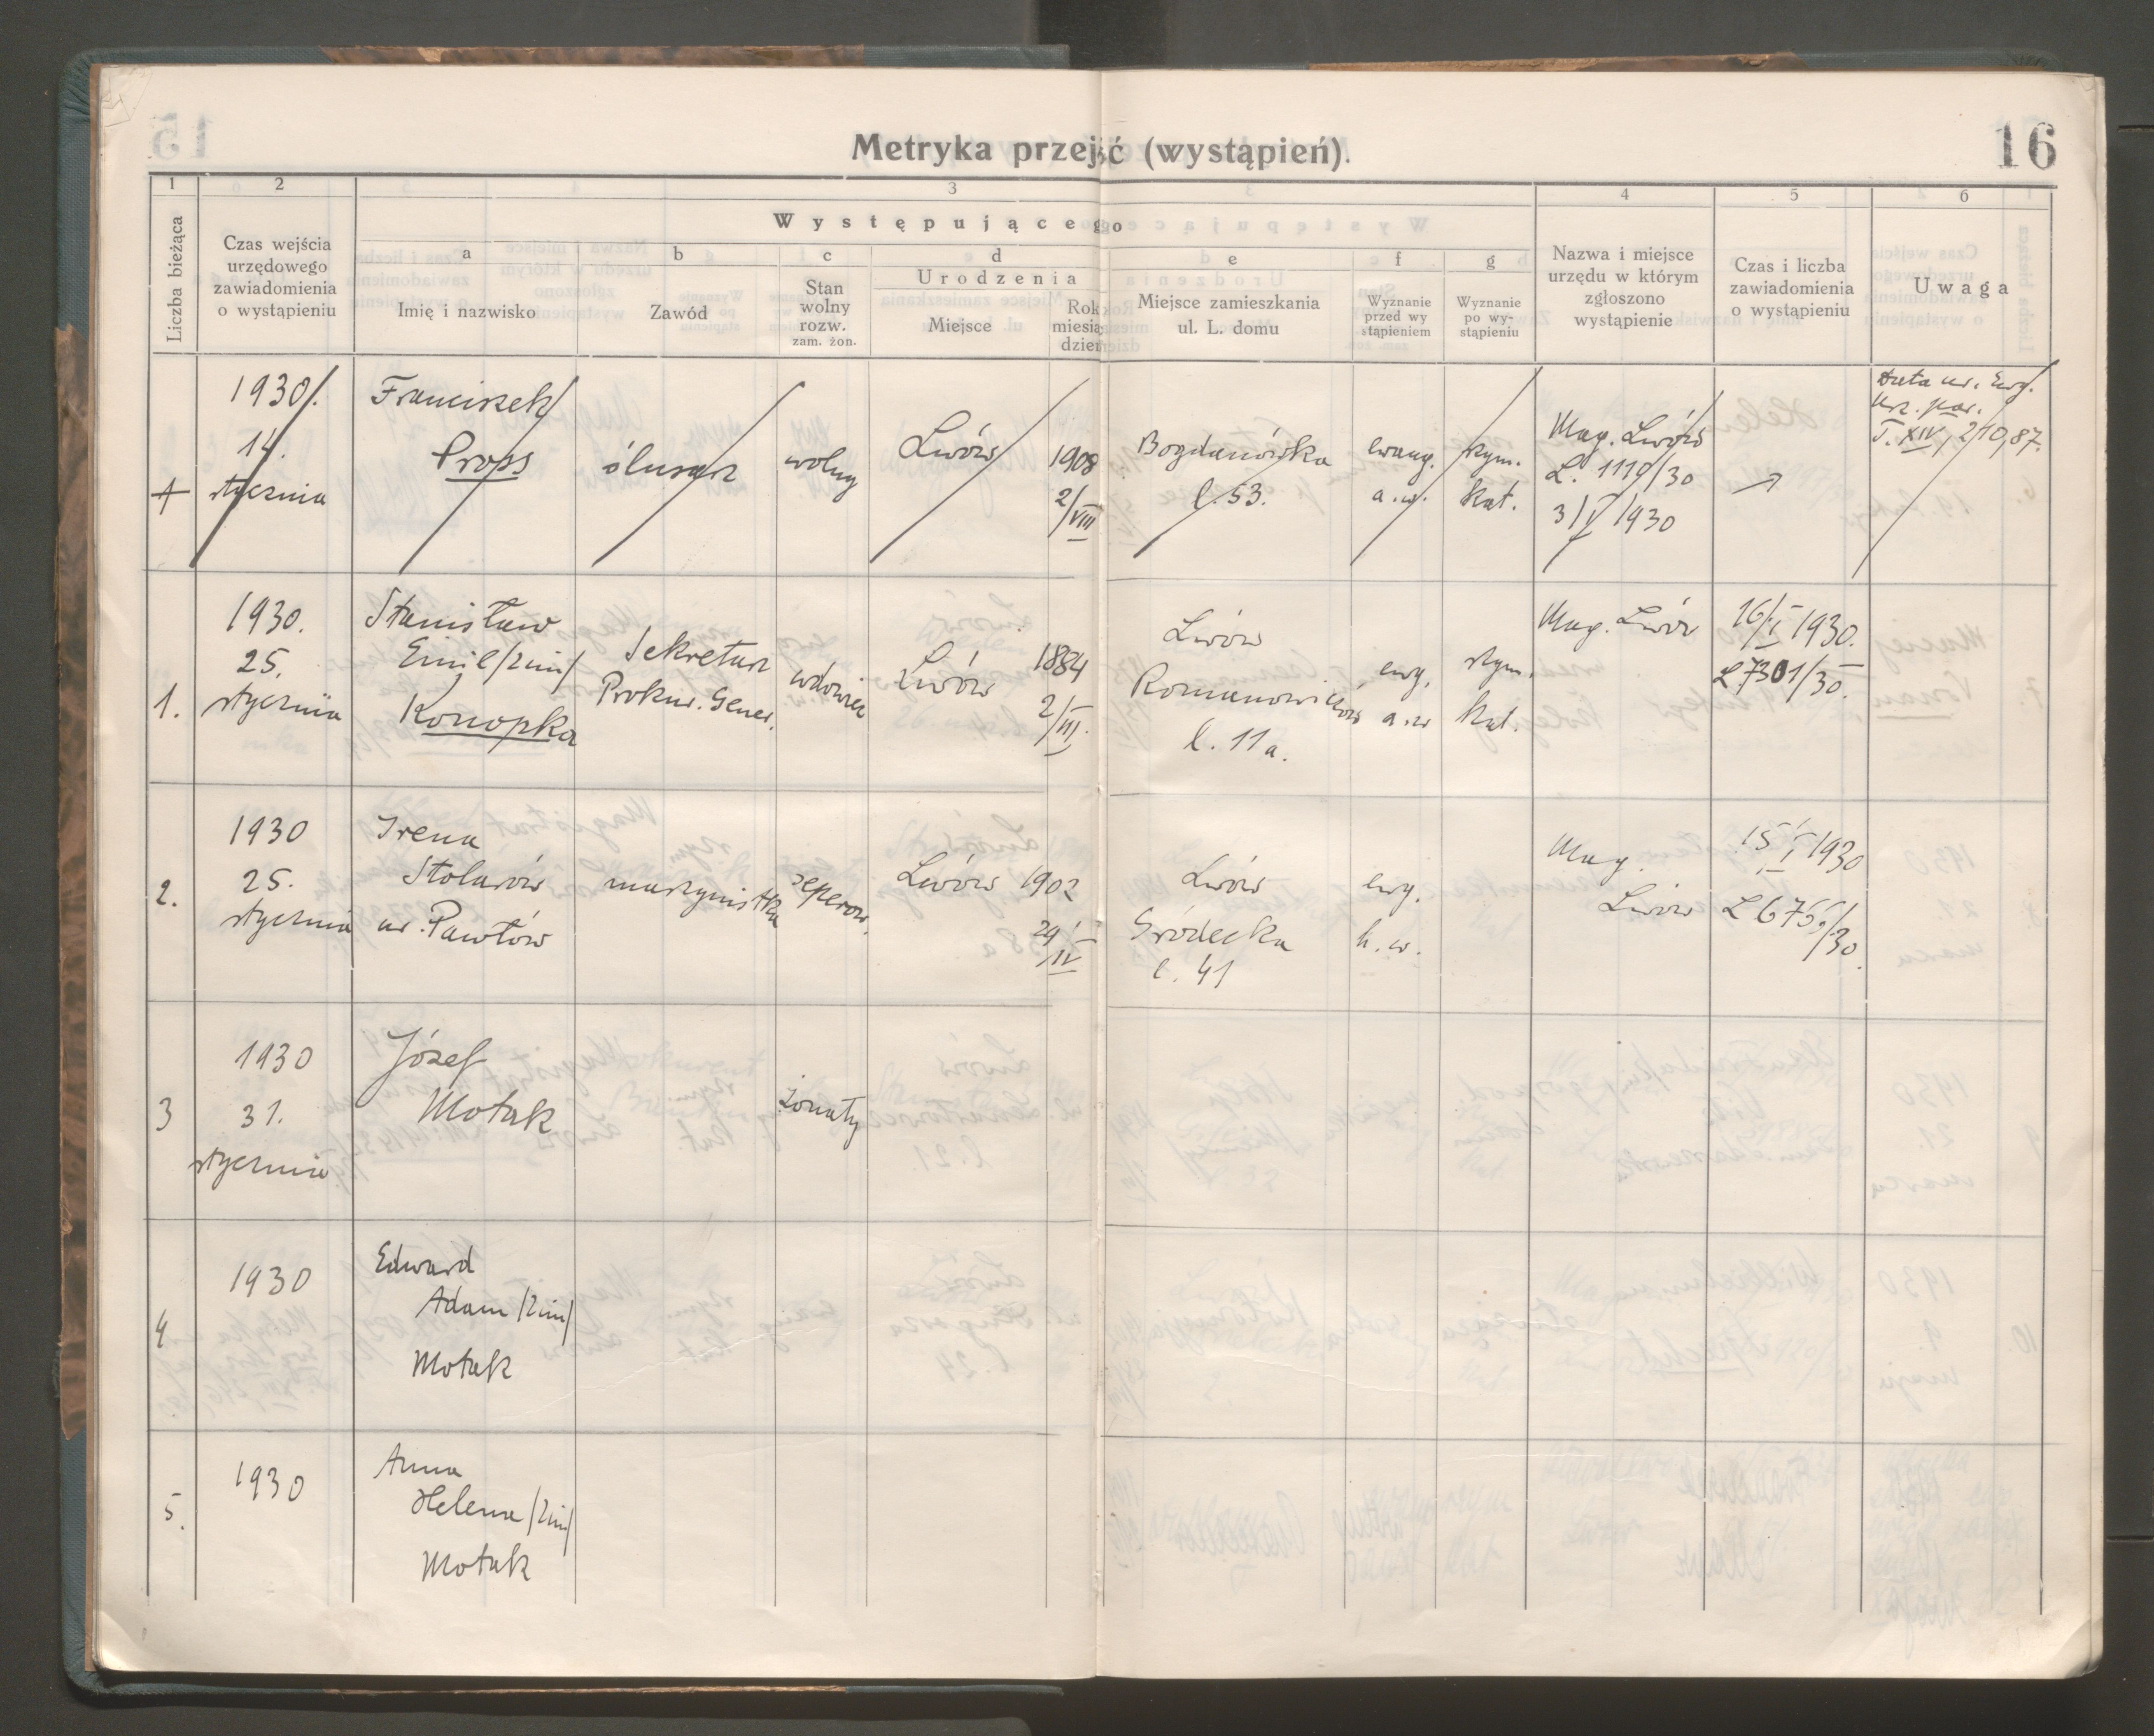 16
Metryka przejść (wystąpień).
1 2 3 4 5 6
Liczba bieżąca
Czas wejścia
urzędowego
zawiadomienia
o wystąpieniu
Występującego
a b c d e f g
Imię i nazwisko
Zawód
Stan
wolny
rozw.
zam. żon.
Urodzenia
Miejsce
Rok
dzień
Miejsce zamieszkania
ul. L. domu
Wyznanie
przed wy
stąpieniem
Wyznanie
po wy-
stąpieniu
Nazwa i miejsce
urzędu w którym
zgłoszono
wystąpienie
Czas i liczba
zawiadomienia
o wystąpieniu
Uwaga
1
1930.
14.
stycznia
Franciszek
Props
ślusarz
wolny
Lwów
1908
2/VIII
Bogdanówka
l. 53.
ewang.
a.w.
rzym.
kat.
Mag. Lwów
L. 1110/30
3/I/1930
Data ur. Ewg.
Urz. par.
T. XIV, 2/10, 87.
1.
1930.
25.
stycznia
Stanisław
Emil /2im/
Konopka
Sekretarz
Prokur. Gener.
wdowiec
Lwów
1884
2/III.
Lwów
Romanowiczów
l. 11a.
ewg.
a.w
rzym.
kat.
Mag. Lwów
16/I 1930.
L 7301/30.
2.
1930
25.
stycznia
Irena
Stolarów
ur. Pawłów
maszynistka
seperow.
Lwów
1902
29/IV
Lwów
Gródecka
l. 41
ewg.
h.w.
Mag.
Lwów
15/I 1930
3
1930
31.
stycznia
Józef
Motak
żonaty
4
1930
Edward
Adam /2im/
Motak
5.
1930
Anna
Helena /2im/
Motak